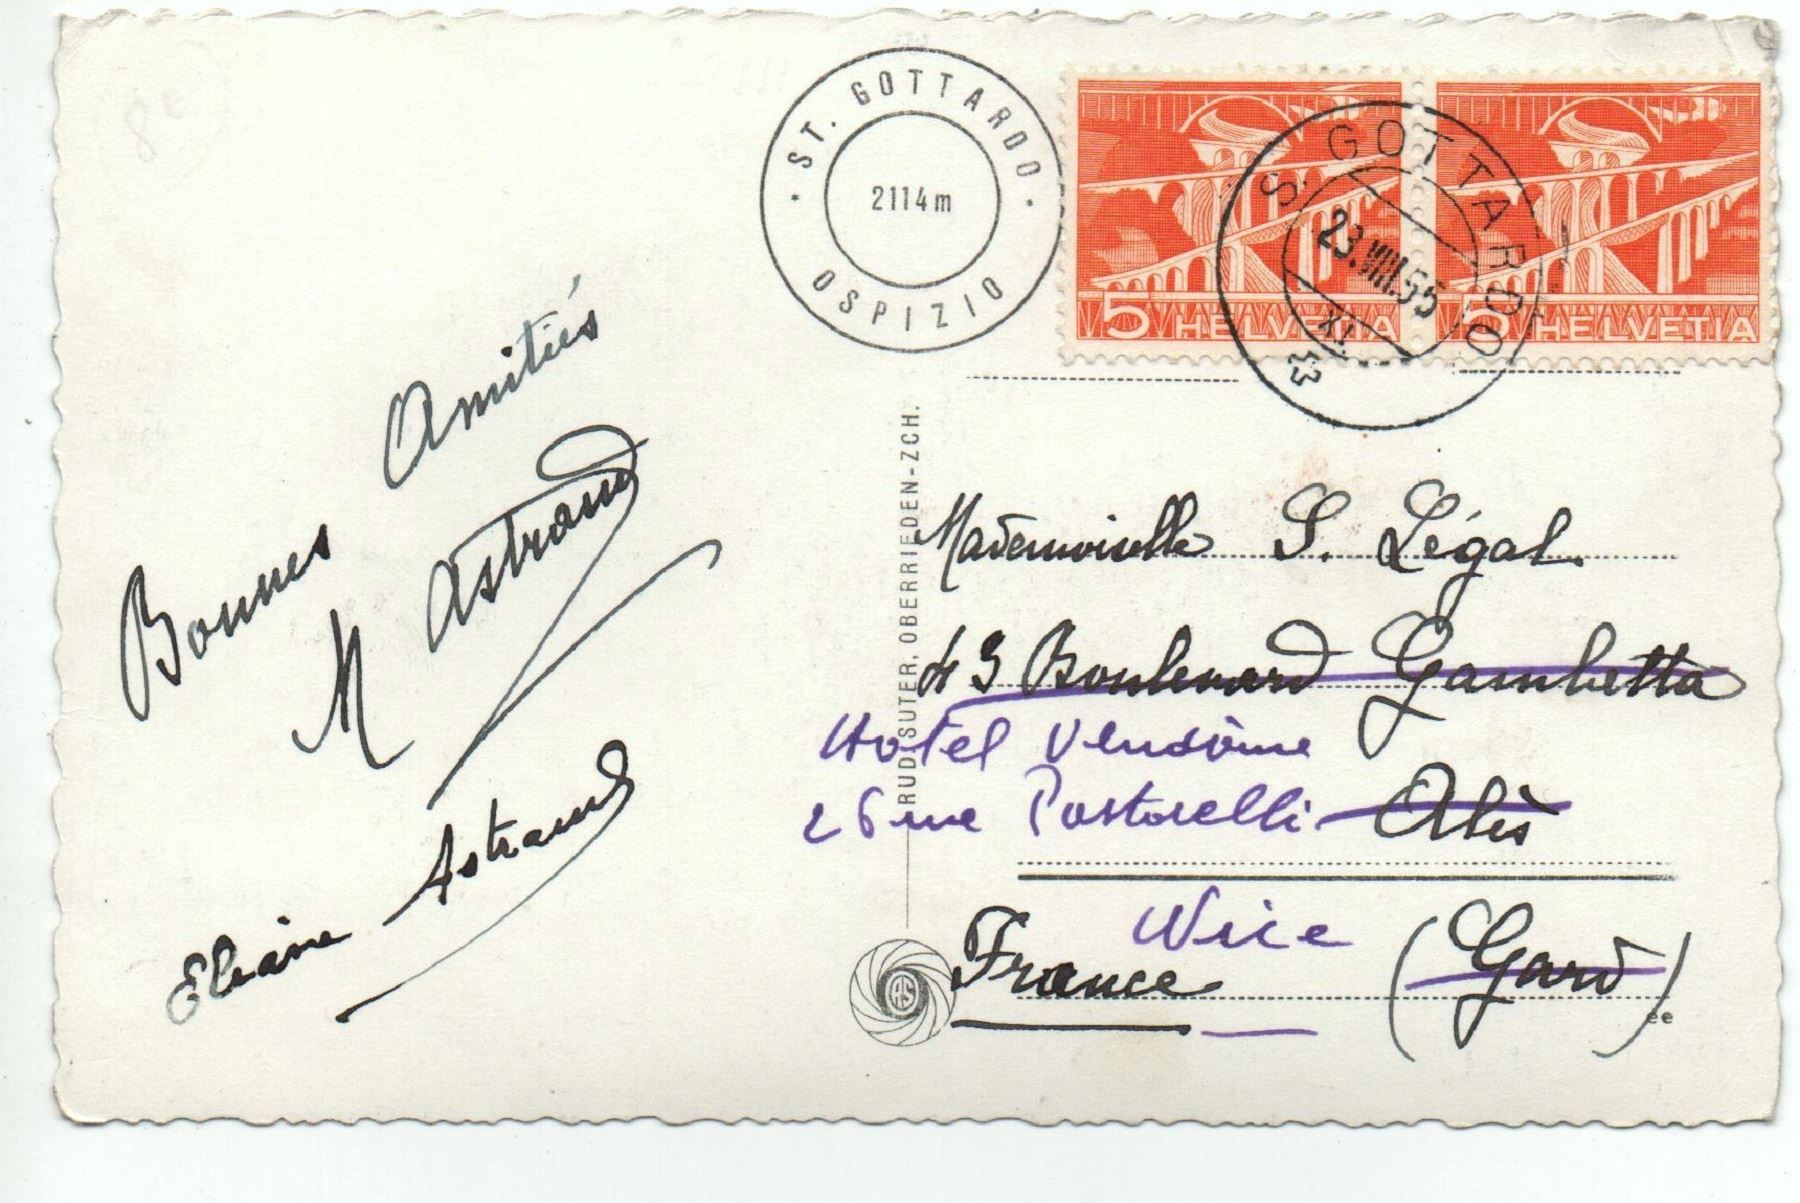 ST. GOTTARDO
2114m
OSPIZIO
5 HELVETIA
5 HELVETIA
S. GOTTARDO
23.VIII.55
XI.
Bonnes Amitiés
M Astrand
Eliane Astrand
RUD. SUTER, OBERRIEDEN-ZCH.
Mademoiselle S. Légal.
43 Boulevard Gambetta
Hotel Vendôme
26 rue Pastorelli
Alès
Nice
France (Gard)
AS
ee